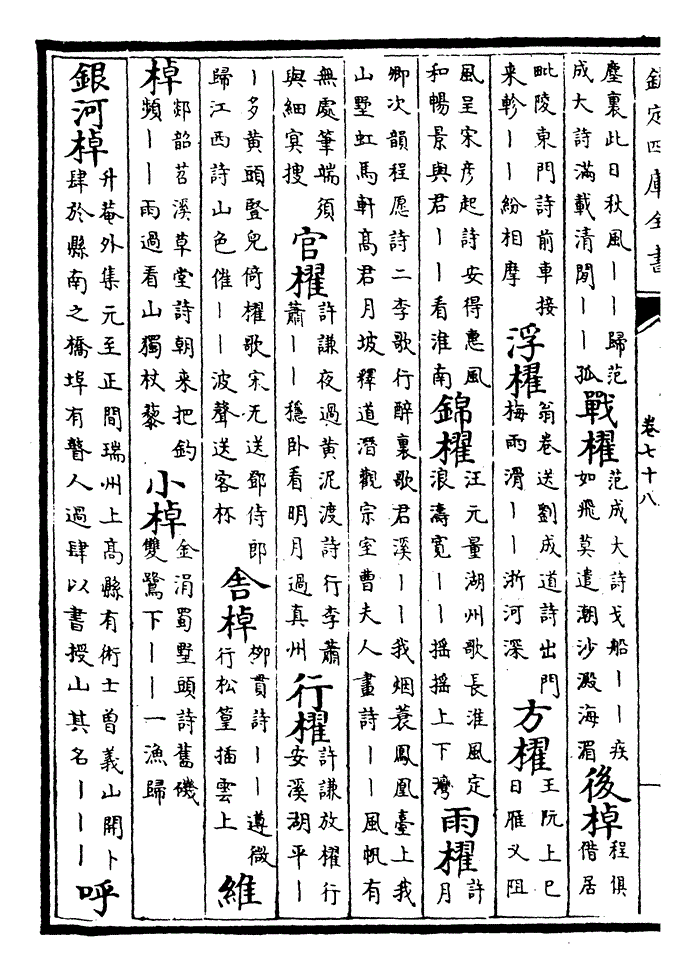 欽定四庫全書 卷七十八
塵裏此日秋風丨丨歸范
成大詩滿載清閒丨丨孤
戰櫂
范成大詩戈船丨丨疾
如飛莫遣潮沙澱海湄
後棹
程俱
借居
毗陵東門詩前車接
来軫丨丨紛相摩
浮櫂
翁卷送劉成道詩出門
梅雨滑丨丨浙河深
方櫂
王阮上巳
日雁义阻
風呈宋彦起詩安得惠風
和暢景與君丨丨看淮南
錦櫂
汪元量湖州歌長淮風定
浪濤寛丨丨摇摇上下灣
雨櫂
許
月
卿次韻程愿詩二李歌行醉裏歌君溪丨丨我烟蓑鳳凰臺上我
山墅虹馬軒髙君月坡釋道潛觀宗室曹夫人畫詩丨丨風帆有
無處筆端須
與細㝠搜
官櫂
許謙夜過黄泥渡詩行李蕭
蕭丨丨穩卧看明月過真州
行櫂
許謙放櫂行
安溪湖平丨
丨多黄頭豎兒倚櫂歌宋无送鄧侍郎
歸江西詩山色催丨丨波聲送客杯
舎棹
栁貫詩丨丨遵微
行松篁插雲上
維
棹
郯韶苕溪草堂詩朝来把釣
頻丨丨雨過看山獨杖藜
小棹
金涓蜀墅頭詩舊磯
雙鷺下丨丨一漁歸
銀河棹
升菴外集元至正間瑞州上髙縣有術士曽義山開卜
肆於縣南之橋埠有瞽人過肆以書授山其名丨丨丨
呼